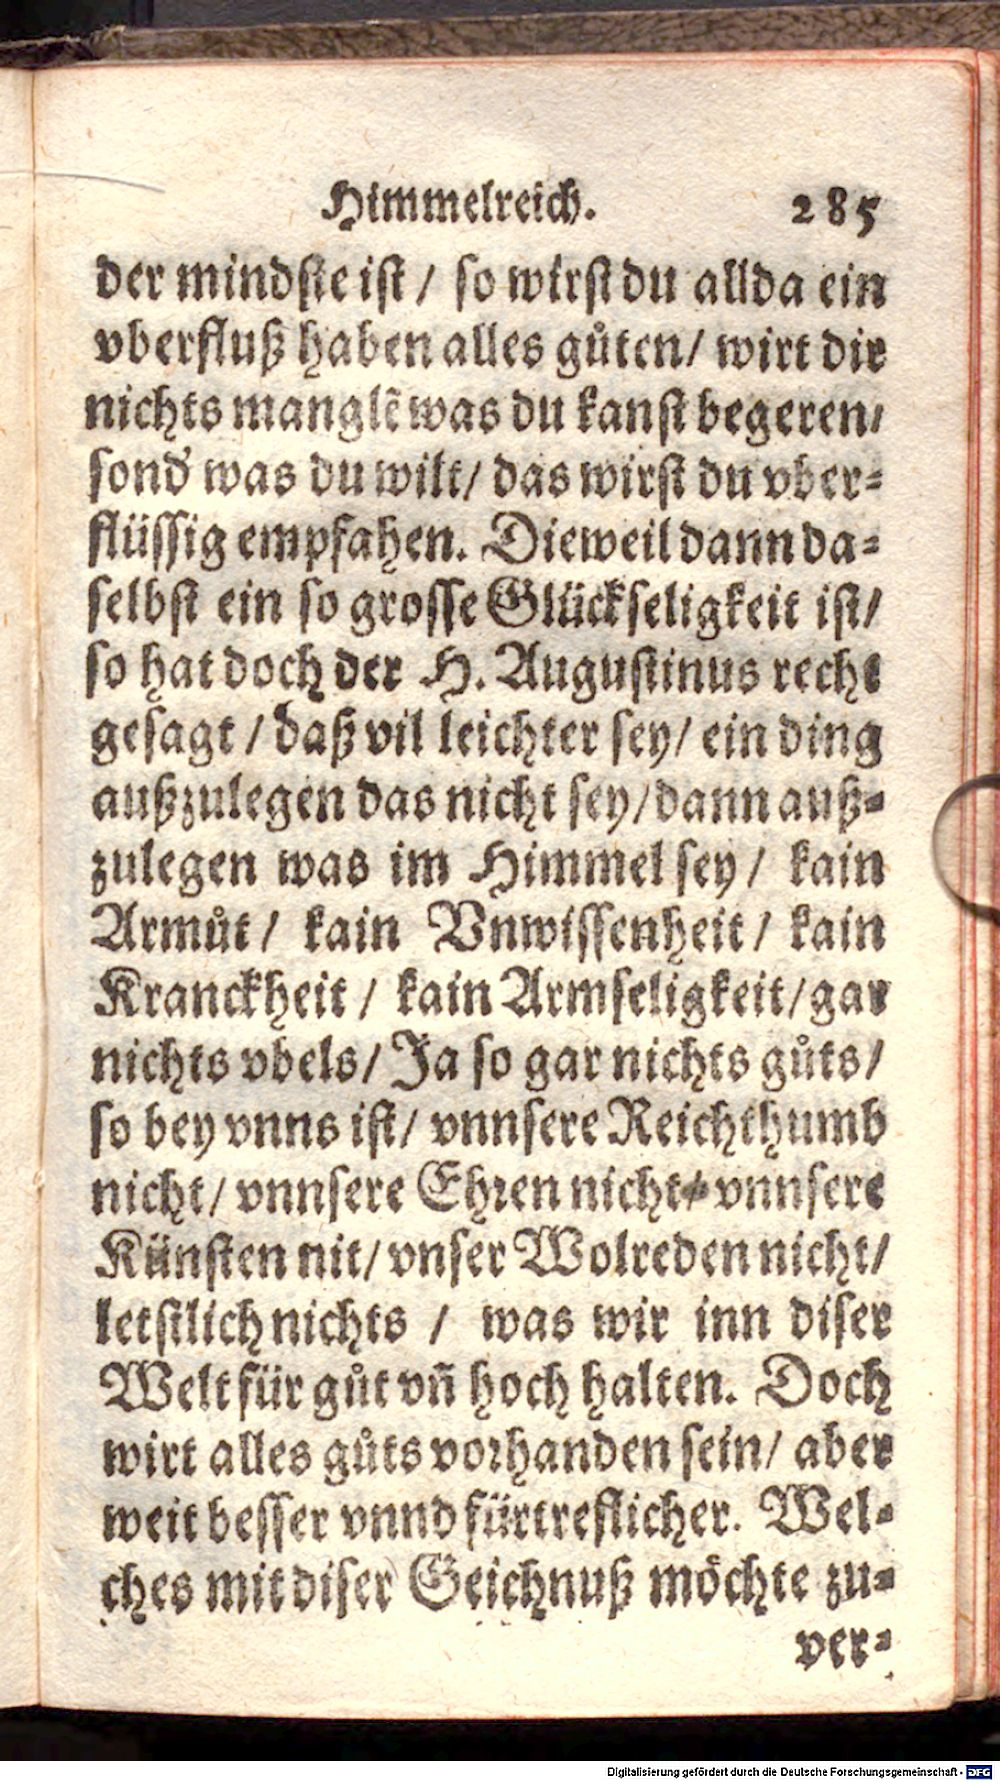 Himmelreich. 285
der mindſte iſt / ſo wirſt du allda ein
vberfluß haben alles gůten/ wirt dir
nichts manglẽ was du kanſt begeren/
ſond̕ was du wilt/ das wirſt du vber-
flüſſig empfahen. Dieweil dann da-
ſelbſt ein ſo groſſe Glückſeligkeit iſt/
ſo hat doch der H. Auguſtinus recht
geſagt / daß vil leichter ſey/ ein ding
außzulegen das nicht ſey/ dann auß-
zulegen was im Himmel ſey / kain
Armůt / kain Vnwiſſenheit / kain
Kranckheit / kain Armſeligkeit/ gar
nichts vbels/ Ja ſo gar nichts gůts/
ſo bey vnns iſt/ vnnſere Reichthumb
nicht/ vnnſere Ehꝛen nicht/ vnnſere
Künſten nit/ vnſer Wolreden nicht/
letſtlich nichts / was wir inn diſer
Welt für gůt vñ hoch halten. Doch
wirt alles gůts voꝛhanden ſein/ aber
weit beſſer vnnd fürtreflicher. Wel-
ches mit diſer Geichnuß möchte zu-
ver-
Digitalisierung gefördert durch die Deutsche Forschungsgemeinschaft - DFG